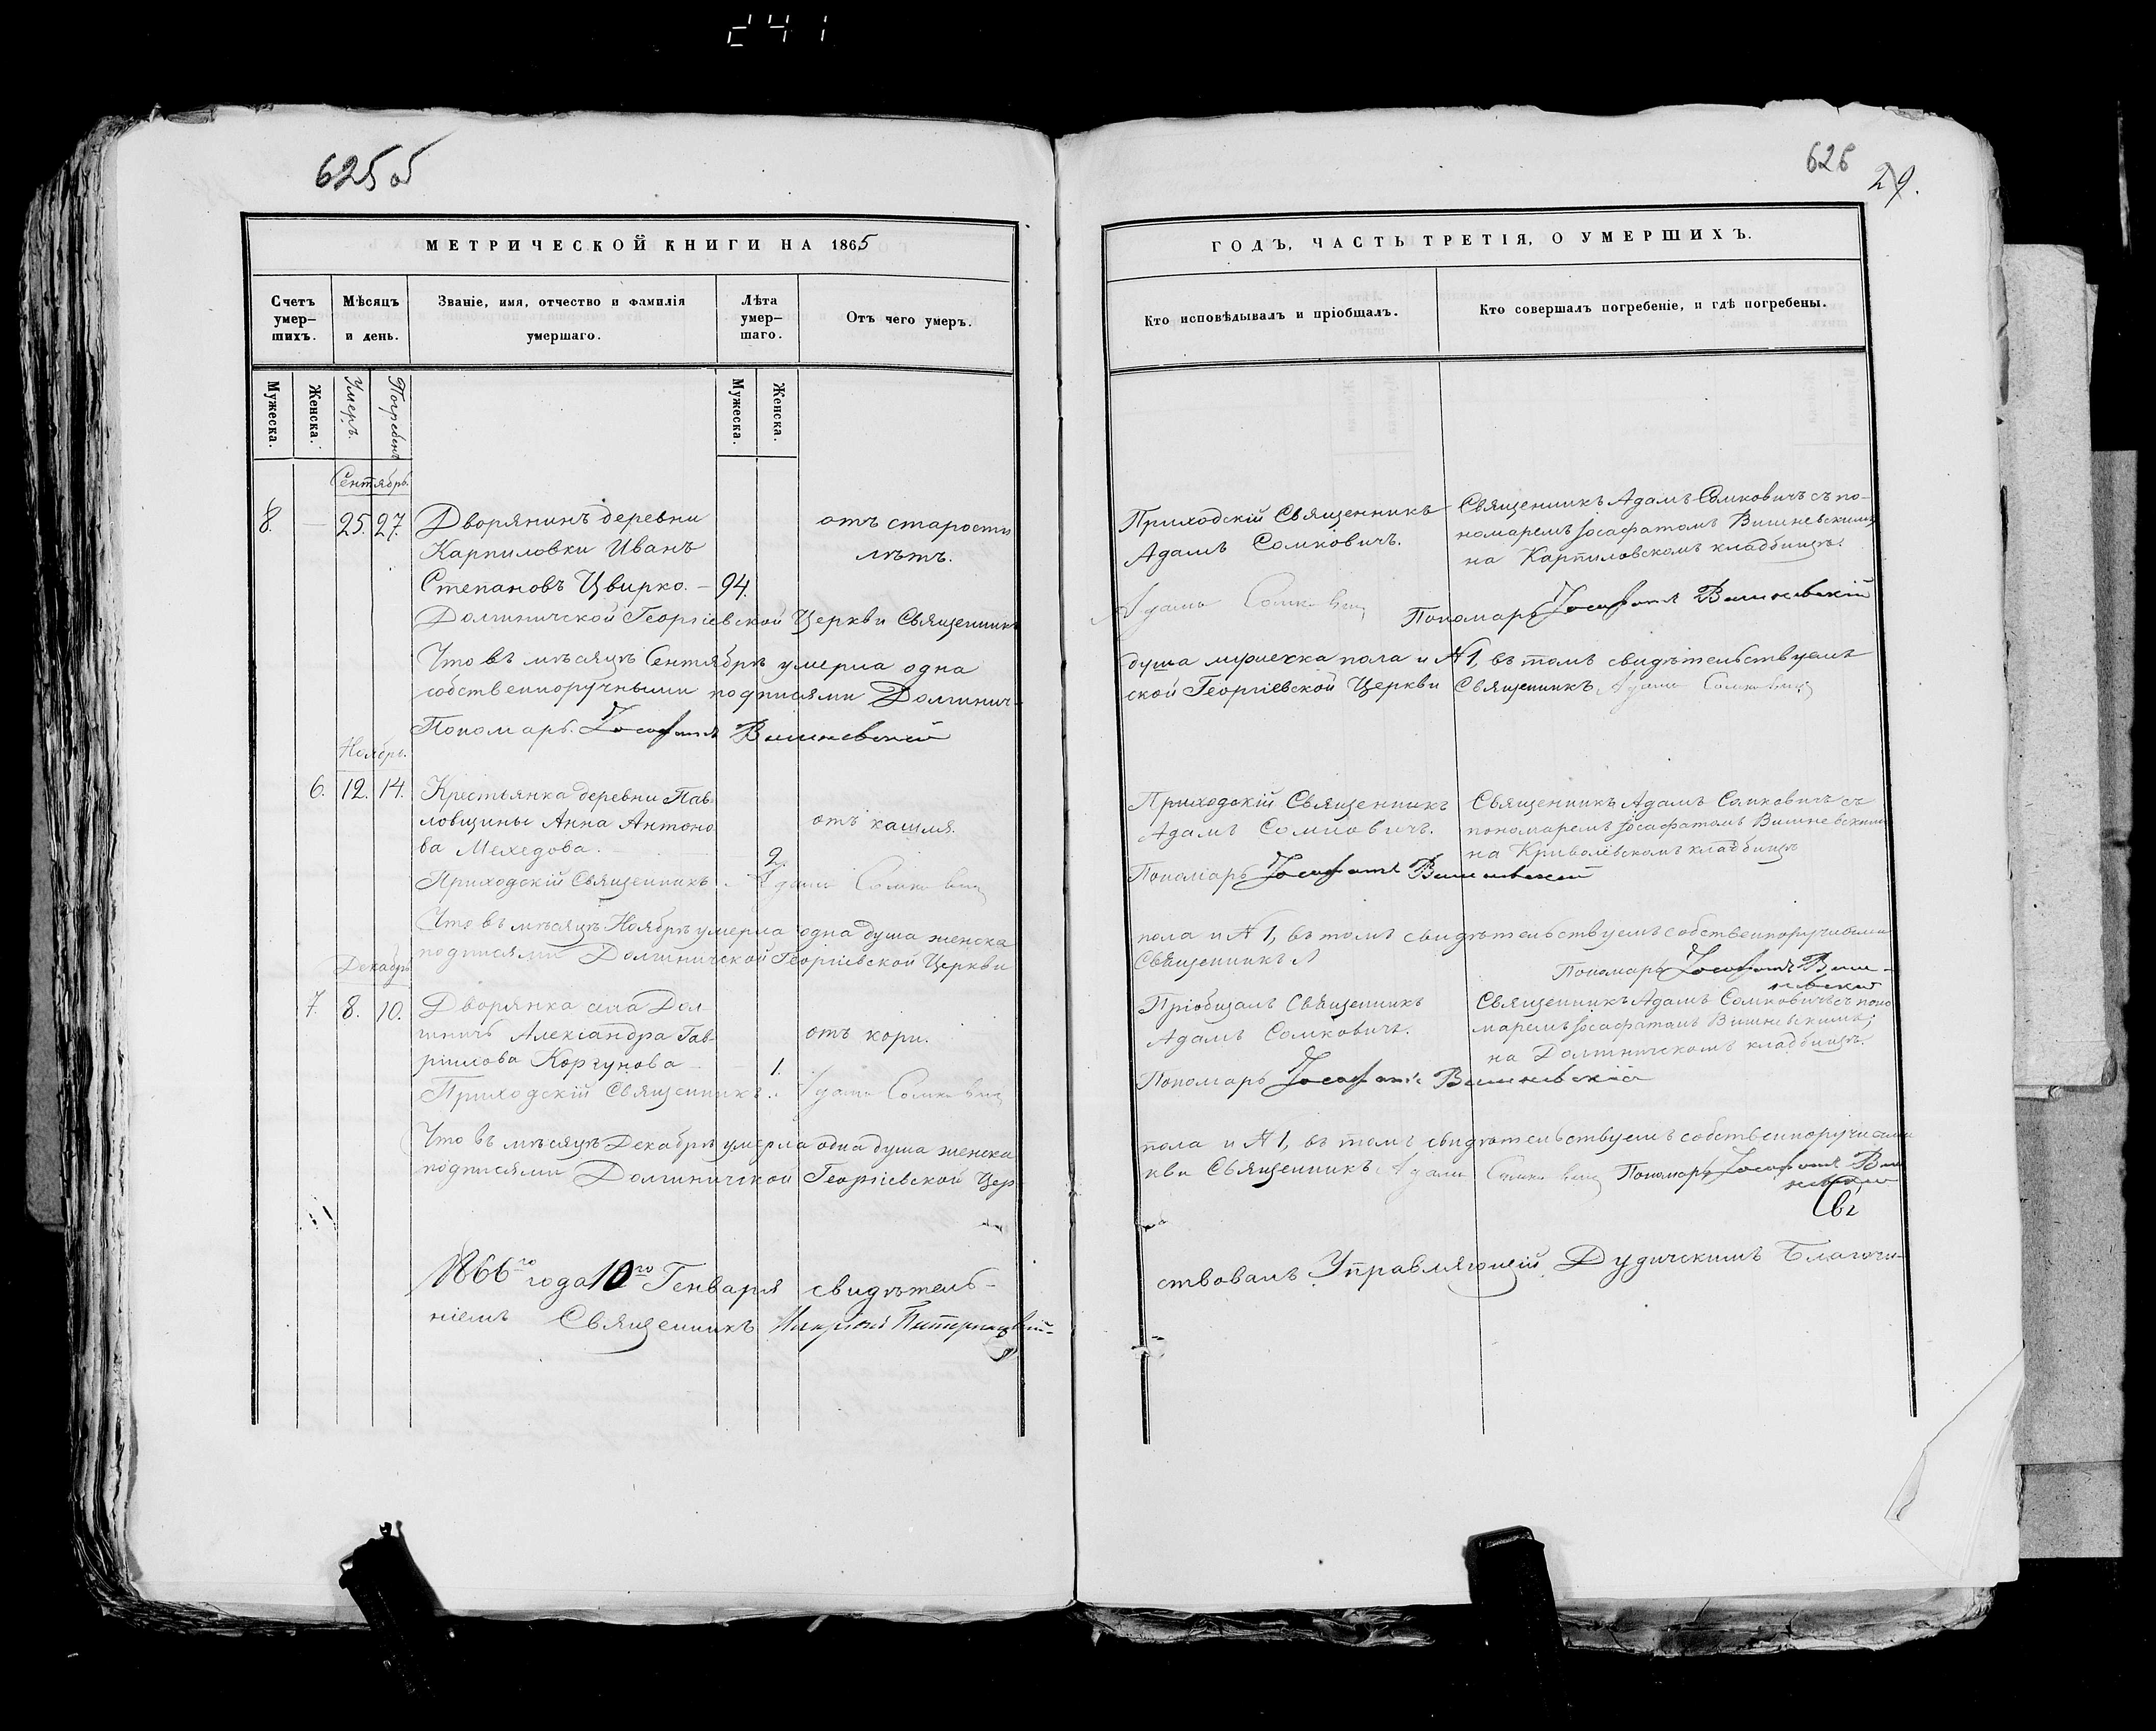 241
625 об
МЕТРИЧЕСКОЙ КНИГИ НА 1865
Счетъ умер-шихъ.
Мѣсяцъ и день.
Званіе, имя, отчество и фамилія умершаго.
Лѣта умер-шаго.
Отъ чего умеръ.
Мужеска.
Женска.
Умеръ.
Погребенъ
Мужеска.
Женска.
Сентябрь.
8. 25. 27. Дворянинъ деревни
Карпиловки Иванъ
Степановъ Цвирко. — 94.
отъ старости
лѣтъ.
Долгиничской Георгіевской Церкви Священникъ
Что въ мѣсяцѣ Сентябрѣ умерла одна
собственноручными подписями Долгинич-
Пономарь Іосафатъ Вишневскій
Ноябрь.
6. 12. 14. Крестьянка деревни Пав-
ловщины Анна Антоно
ва Мехедова.
2.
отъ кашля.
Приходскій Священникъ Адамъ Сомковичъ
Что въ мѣсяцѣ Ноябрѣ умерла одна душа женска
подписями Долгиничской Георгіевской Церкви
Декабрь
7. 8. 10. Дворянка села Дол-
гиничъ Александра Гав-
ріилова Коргунова
1.
отъ кори.
Приходскій Священникъ Адамъ Сомковичъ
Что въ мѣсяцѣ Декабрѣ умерла одна душа женска
подписями Долгиничской Георгіевской Цер
1866го года 10го Генваря свидѣтель-
ніемъ Священникъ
626
29.
ГОДЪ, ЧАСТЬ ТРЕТІЯ, О УМЕРШИХЪ.
Кто исповѣдывалъ и пріобщалъ.
Кто совершалъ погребеніе, и гдѣ погребены.
Приходскій Священникъ
Адамъ Сомковичъ.
Священникъ Адамъ Сомковичъ съ по-
номаремъ Іосафатомъ Вишневскимъ
на Карпиловскомъ кладбищѣ.
Адамъ Сомковичъ Пономарь Іосафатъ Вишневскій
душа мужеска пола и № 1, въ томъ свидѣтельствуемъ
ской Георгіевской Церкви Священникъ Адамъ Сомковичъ
Приходскій Священникъ
Адамъ Сомковичъ.
Священникъ Адамъ Сомковичъ съ
пономаремъ Іосафатомъ Вишневскимъ
на Криволевскомъ кладбищѣ
Пономарь Іосафатъ Вишневскій
пола и № 1, въ томъ свидѣтельствуемъ собственноручными
Священникъ
Пономарь Іосафатъ Виш-
невскій
Пріобщалъ Священникъ
Адамъ Сомковичъ.
Священникъ Адамъ Сомковичъ съ поно
маремъ Іосафатомъ Вишневскимъ;
на Долгиничскомъ кладбищѣ.
Пономарь Іосафатъ Вишневскій
пола и № 1, въ томъ свидѣтельствуемъ собственноручными
кви Священникъ Адамъ Сомковичъ Пономарь Іосафатъ Виш
невскій
ствовалъ Управляющій Дудичскимъ Благочи-